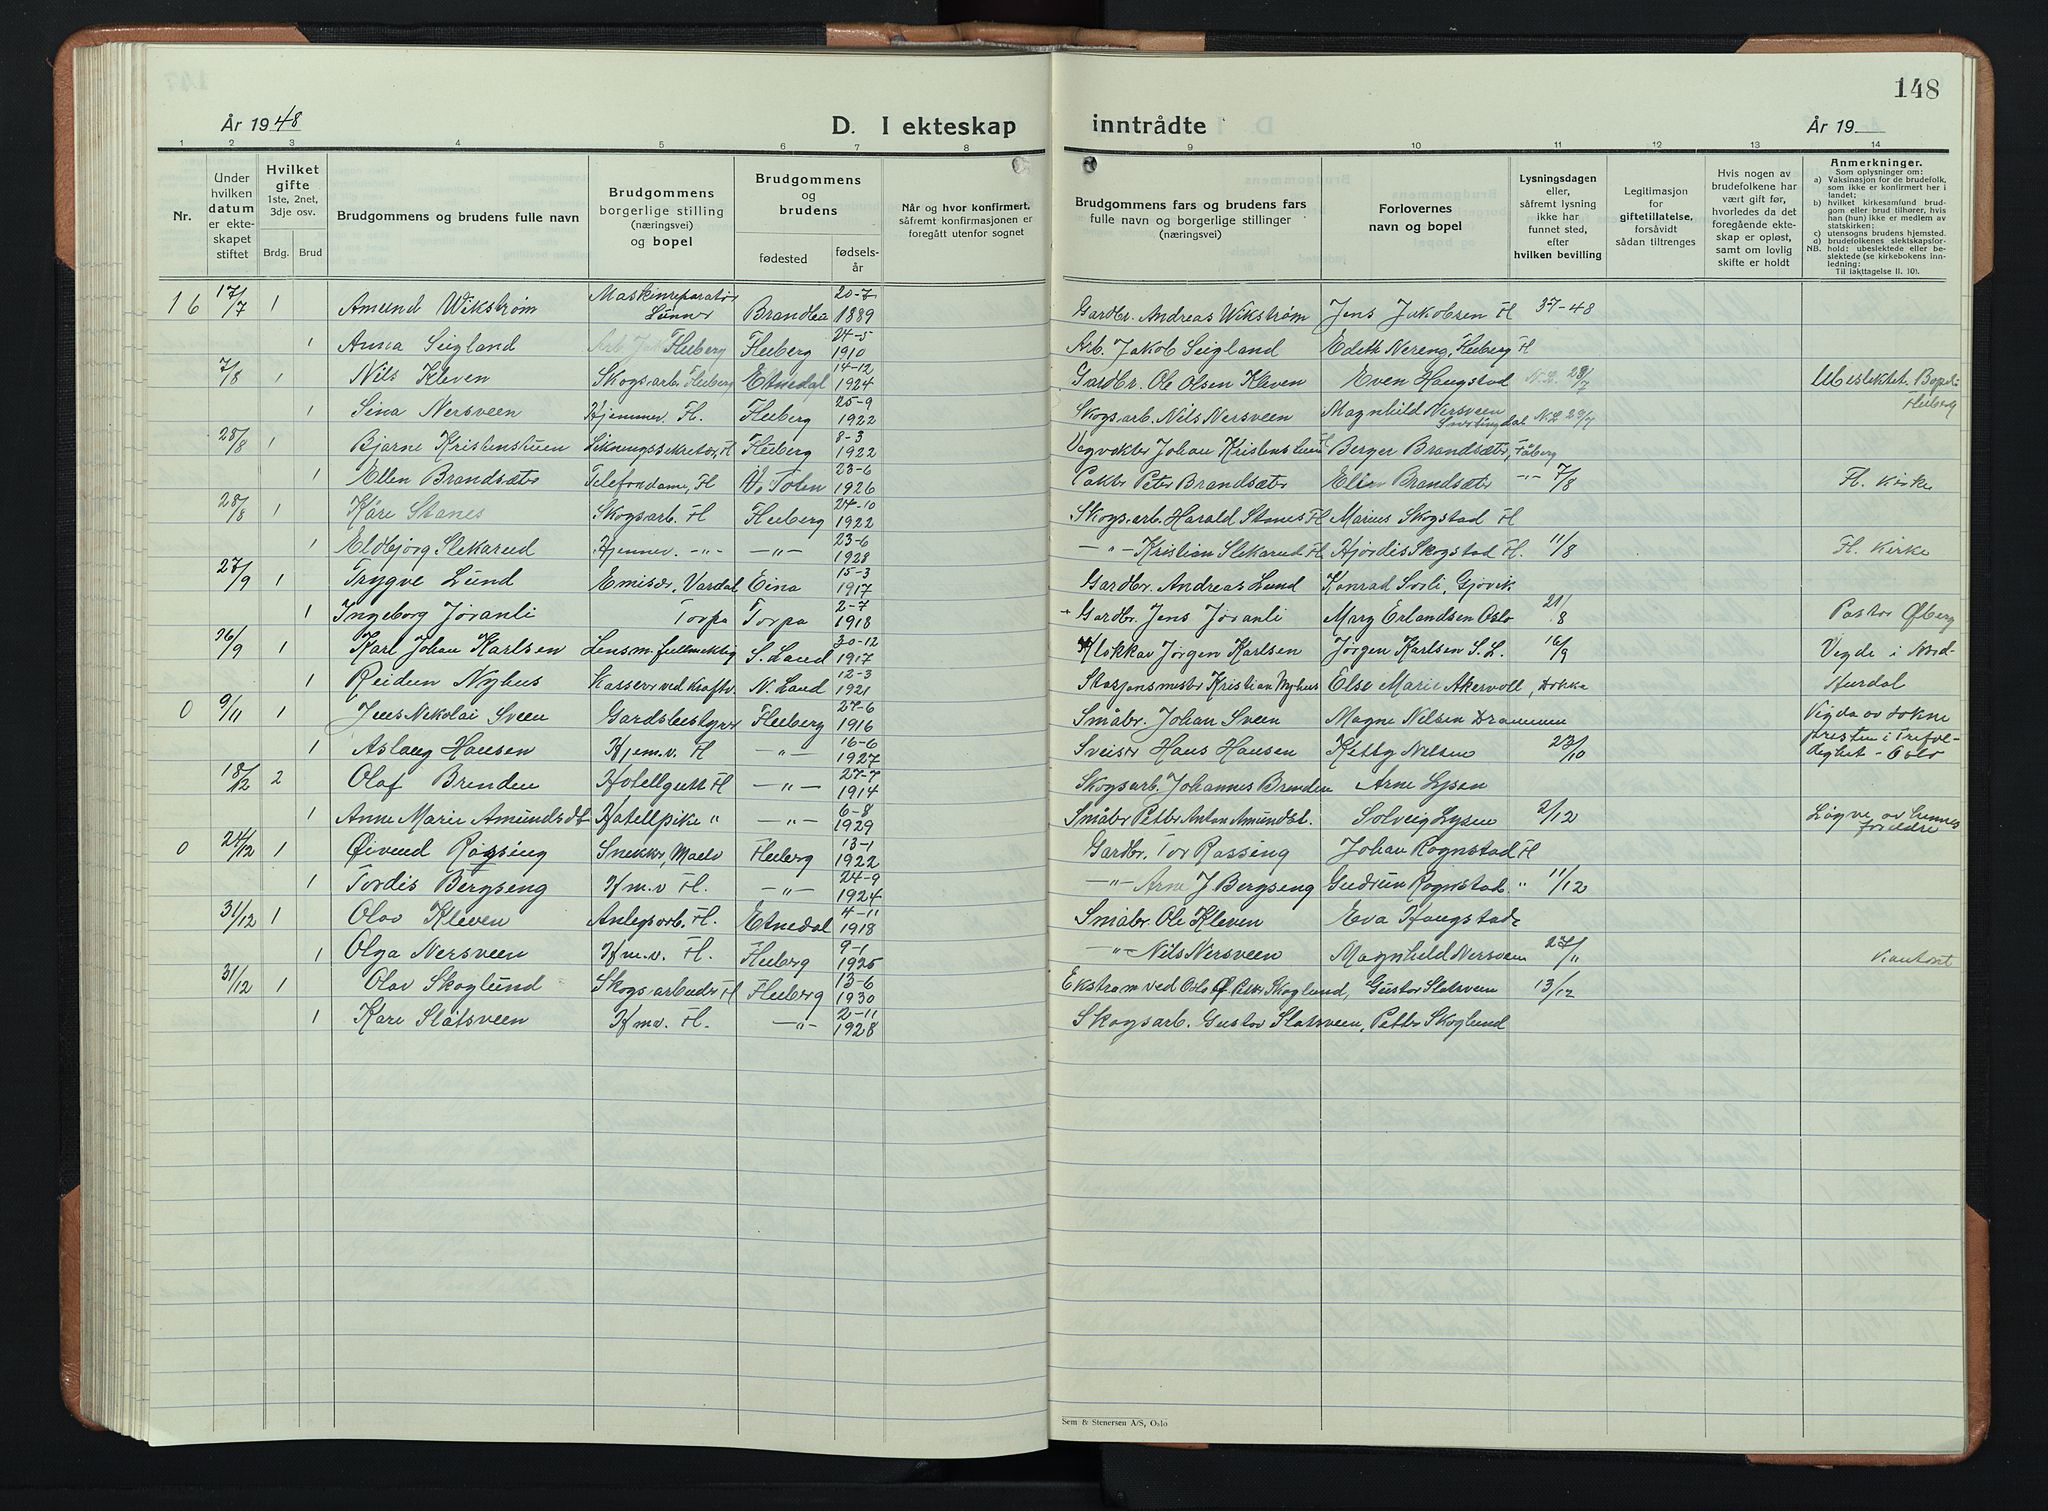 148
År 1948
D. I ekteskap inntrådte
År 19
1 2 3 4 5 6 7 8 9 10 11 12 13 14
Nr.
Under hvilken datum er ekteskapet stiftet
Hvilket gifte 1ste, 2net, 3dje osv.
Brdg. Brud
Brudgommens og brudens fulle navn
Brudgommens borgerlige stilling (næringsvei) og bopel
Brudgommens og brudens
fødested
fødselsår
Når og hvor konfirmert, såfremt konfirmasjonen er foregått utenfor sognet
Brudgommens fars og brudens fars fulle navn og borgerlige stillinger (næringsvei)
Forlovernes navn og bopel
Lysningsdagen eller, såfremt lysning ikke har funnet sted, efter hvilken bevilling
Legitimasjon for giftetillatelse, forsåvidt sådan tiltrenges
Hvis nogen av brudefolkene har vært gift før, hvorledes da det foregående ekteskap er opløst, samt om lovlig skifte er holdt
Anmerkninger.
Som oplysninger om:
a) Vaksinasjon for de brudefolk, som ikke er konfirmert her i landet;
b) hvilket kirkesamfund brudgom eller brud tilhører, hvis han (hun) ikke er medlem av statskirken;
c) utensogns brudens hjemsted.
d) brudefolkenes slektskapsforhold: ubeslektede eller beslektede (se kirkebokens innledning:
NB.
Til iakttagelse II. 10).
16 17/7 1 Amund Wikstrøm Maskinreparatør Lunner Brandbu 20-7 1889 Gardbr. Andreas Wikstrøm Jens Jakobsen Fl 3-7-48
1 Anna Seigland Fluberg Fluberg 24-5 1910 Arb. Jakob Seigland Edith Nereng, Fluberg Fl
7/8 1 Nils Kleven Skogsarb. Fluberg, Etnedal 14-12 1924 Gardbr. Ole Olsen Kleven Even Haugstad N.L. 28/7 Ubeslektet. Bopel: Fluberg
1 Sina Nersveen Hjemmev. Fl. Fluberg 25-9 1922 Skogsarb. Nils Nersveen Magnhild Nersveen Snertingdal N.L. 29/7
28/8 1 Bjarne Kristenstuen Likningssekretær, Fl Fluberg 8-3 1922 Vegvokter Johan Kristenstuen Berger Brandsæter, Fåberg
1 Ellen Brandsæter Telefondame, Fl V. Toten 23-6 1926 Peter Brandsæter Brandsæter -"- 7/8 Fl. Kirke
28/8 1 Kåre Stanes Skogsarb. Fl Fluberg 24-10 1922 Skogsarb. Harald Stanes Fl Marius Skogstad Fl
1 Eldbjørg Slekarud Hjemmev. -"- -"- 23-6 1928 -"- Kristian Slekarud Fl. Hjørdis Skogstad Fl. 11/8 Fl. Kirke
27/9 1 Trygve Lund Emisær, Vardal Eina 15-3 1917 Gardbr. Andreas Lund Konrad Sørli, Gjøvik
1 Ingeborg Jøranli Torpa Torpa 2-7 1918 Gardbr. Jens Jøranli Mary Erlandsen Oslo 21/8 Pastor Øfberg
1 Karl Johan Karlsen Lensm. fullmektig S. Land 30-12 1917 Klokkar Jørgen Karlsen Jørgen Karlsen S. L. 16/9 Vigde i Nord-
1 Reidun Nyhus Kasserer ved Kraftv. N. Land 12-3 1921 Stasjonsmester Kristian Nyhus Else Marie Akervoll, Dokka Aurdal
0 9/11 1 Jens Nikolai Sveen Gardsbestyrer Fluberg 27-6 1916 Småbr. Johan Sveen Magne Nilsen Drammen Vigde av sokne
1 Aslaug Hansen Hjem.v. Fl -"- 16-6 1927 Sveiser Hans Hansen Kitty Nilsen 23/10 presten i Trefoldighet - Oslo
18/12 2 Olaf Brenden Hotellgutt Fl -"- 27-7 1914 Skogsarb. Johannes Brenden Arne Lysen
1 Anne Marie Amundsdt. Hotellpike " -"- 6-8 1929 Småbr Petter Anton Amundst. Solveig Lysen 2/12 Løyve av hennes foreldre
0 24/12 1 Øivind Røssing Snekker, Maelv Fluberg 13-1 1922 Gardbr. Tor Rossing Johan Rognstad Fl
1 Tordis Bergseng Hm.v Fl. -"- 24-9 1924 -"- Arne J Bergseng Gudrun Rognstad " 11/12
31/12 1 Olav Kleven Anlegsarb. Fl. Etnedal 4-11 1918 Småbr. Ole Kleven Eva Haugstad
1 Olga Nersveen Hm.v. Fl. Fluberg 9-1 1925 -"- Nils Nersveen Magnhild Nersveen 27/11
31/12 1 Olav Skoglund Skogsarbeider Fl Fluberg 13-6 1930 Petter Skoglund, Gustav Slåtsveen 13/12
1 Kari Slåtsveen Hmv. Fl. -"- 2-11 1928 Skogsarb. Gustav Slåtsveen, Petter Skoglund
Sem & Stenersen A/S, Oslo